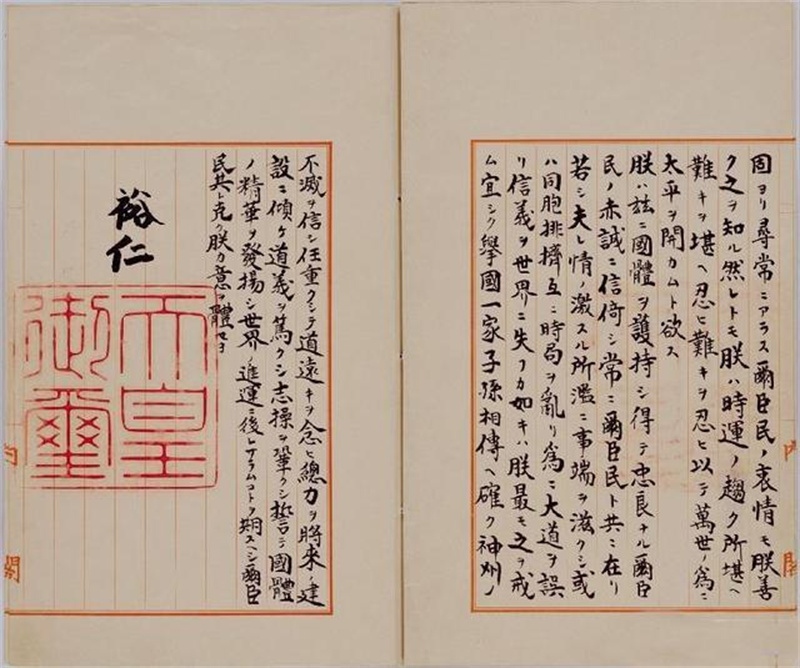 固ヨリ尋常ニアラス爾臣民ノ衷情モ朕善
ク之ヲ知ル然レトモ朕ハ時運ノ趨ク所堪ヘ
難キヲ堪ヘ忍ヒ難キヲ忍ヒ以テ萬世ノ爲ニ
太平ヲ開カムト欲ス
朕ハ玆ニ國體ヲ護持シ得テ忠良ナル爾臣
民ノ赤誠ニ信倚シ常ニ爾臣民ト共ニ在リ
若シ夫レ情ノ激スル所濫ニ事端ヲ滋クシ或
ハ同胞排擠互ニ時局ヲ亂リ爲ニ大道ヲ誤
リ信義ヲ世界ニ失フカ如キハ朕最モ之ヲ戒
ム宜シク擧國一家子孫相傳ヘ確ク神州ノ
内閣
不滅ヲ信シ任重クシテ道遠キヲ念ヒ總力ヲ將來ノ建
設ニ傾ケ道義ヲ篤クシ志操ヲ鞏クシ誓テ國體
ノ精華ヲ發揚シ世界ノ進運ニ後レサラムコトヲ期スヘシ爾臣
民其レ克ク朕カ意ヲ體セヨ
裕仁
天皇
御璽
内閣